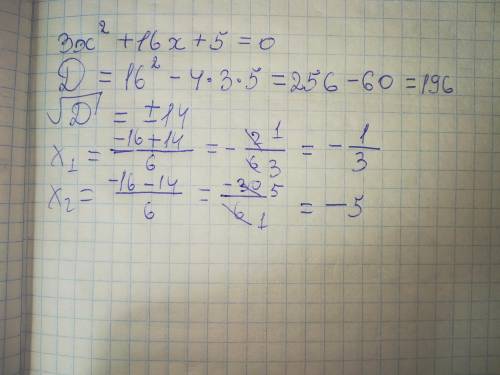 3x² + 16x + 5 = 0
D = 16² - 4·3·5 = 256 - 60 = 196
√D = ±14
x₁ = (-16+14)/6 = - 2̶ 1/6̶ 3 = - 1/3
x₂ = (-16-14)/6 = -3̶0̶ 5/6̶ 1 = -5